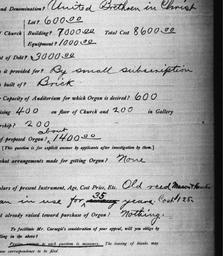 and Denomination? United Brethren in Christ
Lot? 600.00
Church Building? 7000.00 Total Cost 8600.00
Equipment? 1000.00
of Debt? $3000.00
is it provided for? By small subscription
built of? Brick
Capacity of Auditorium for which Organ is desired? 600
400 on floor of Church and 200 in Gallery
200
about
of proposed Organ? 1400.00
(This question is for explicit answer by applicants after investigation by them.)
what arrangements made for getting Organ? None
of present Instrument, Age, Cost Price, Etc. Old reed Mason &
in use for 35 years Cost $125
already raised toward purchase of Organ? Nothing.
To facilitate Mr. Carnegie's consideration of appeal, will you oblige by
in the above?
correspondence to be filed